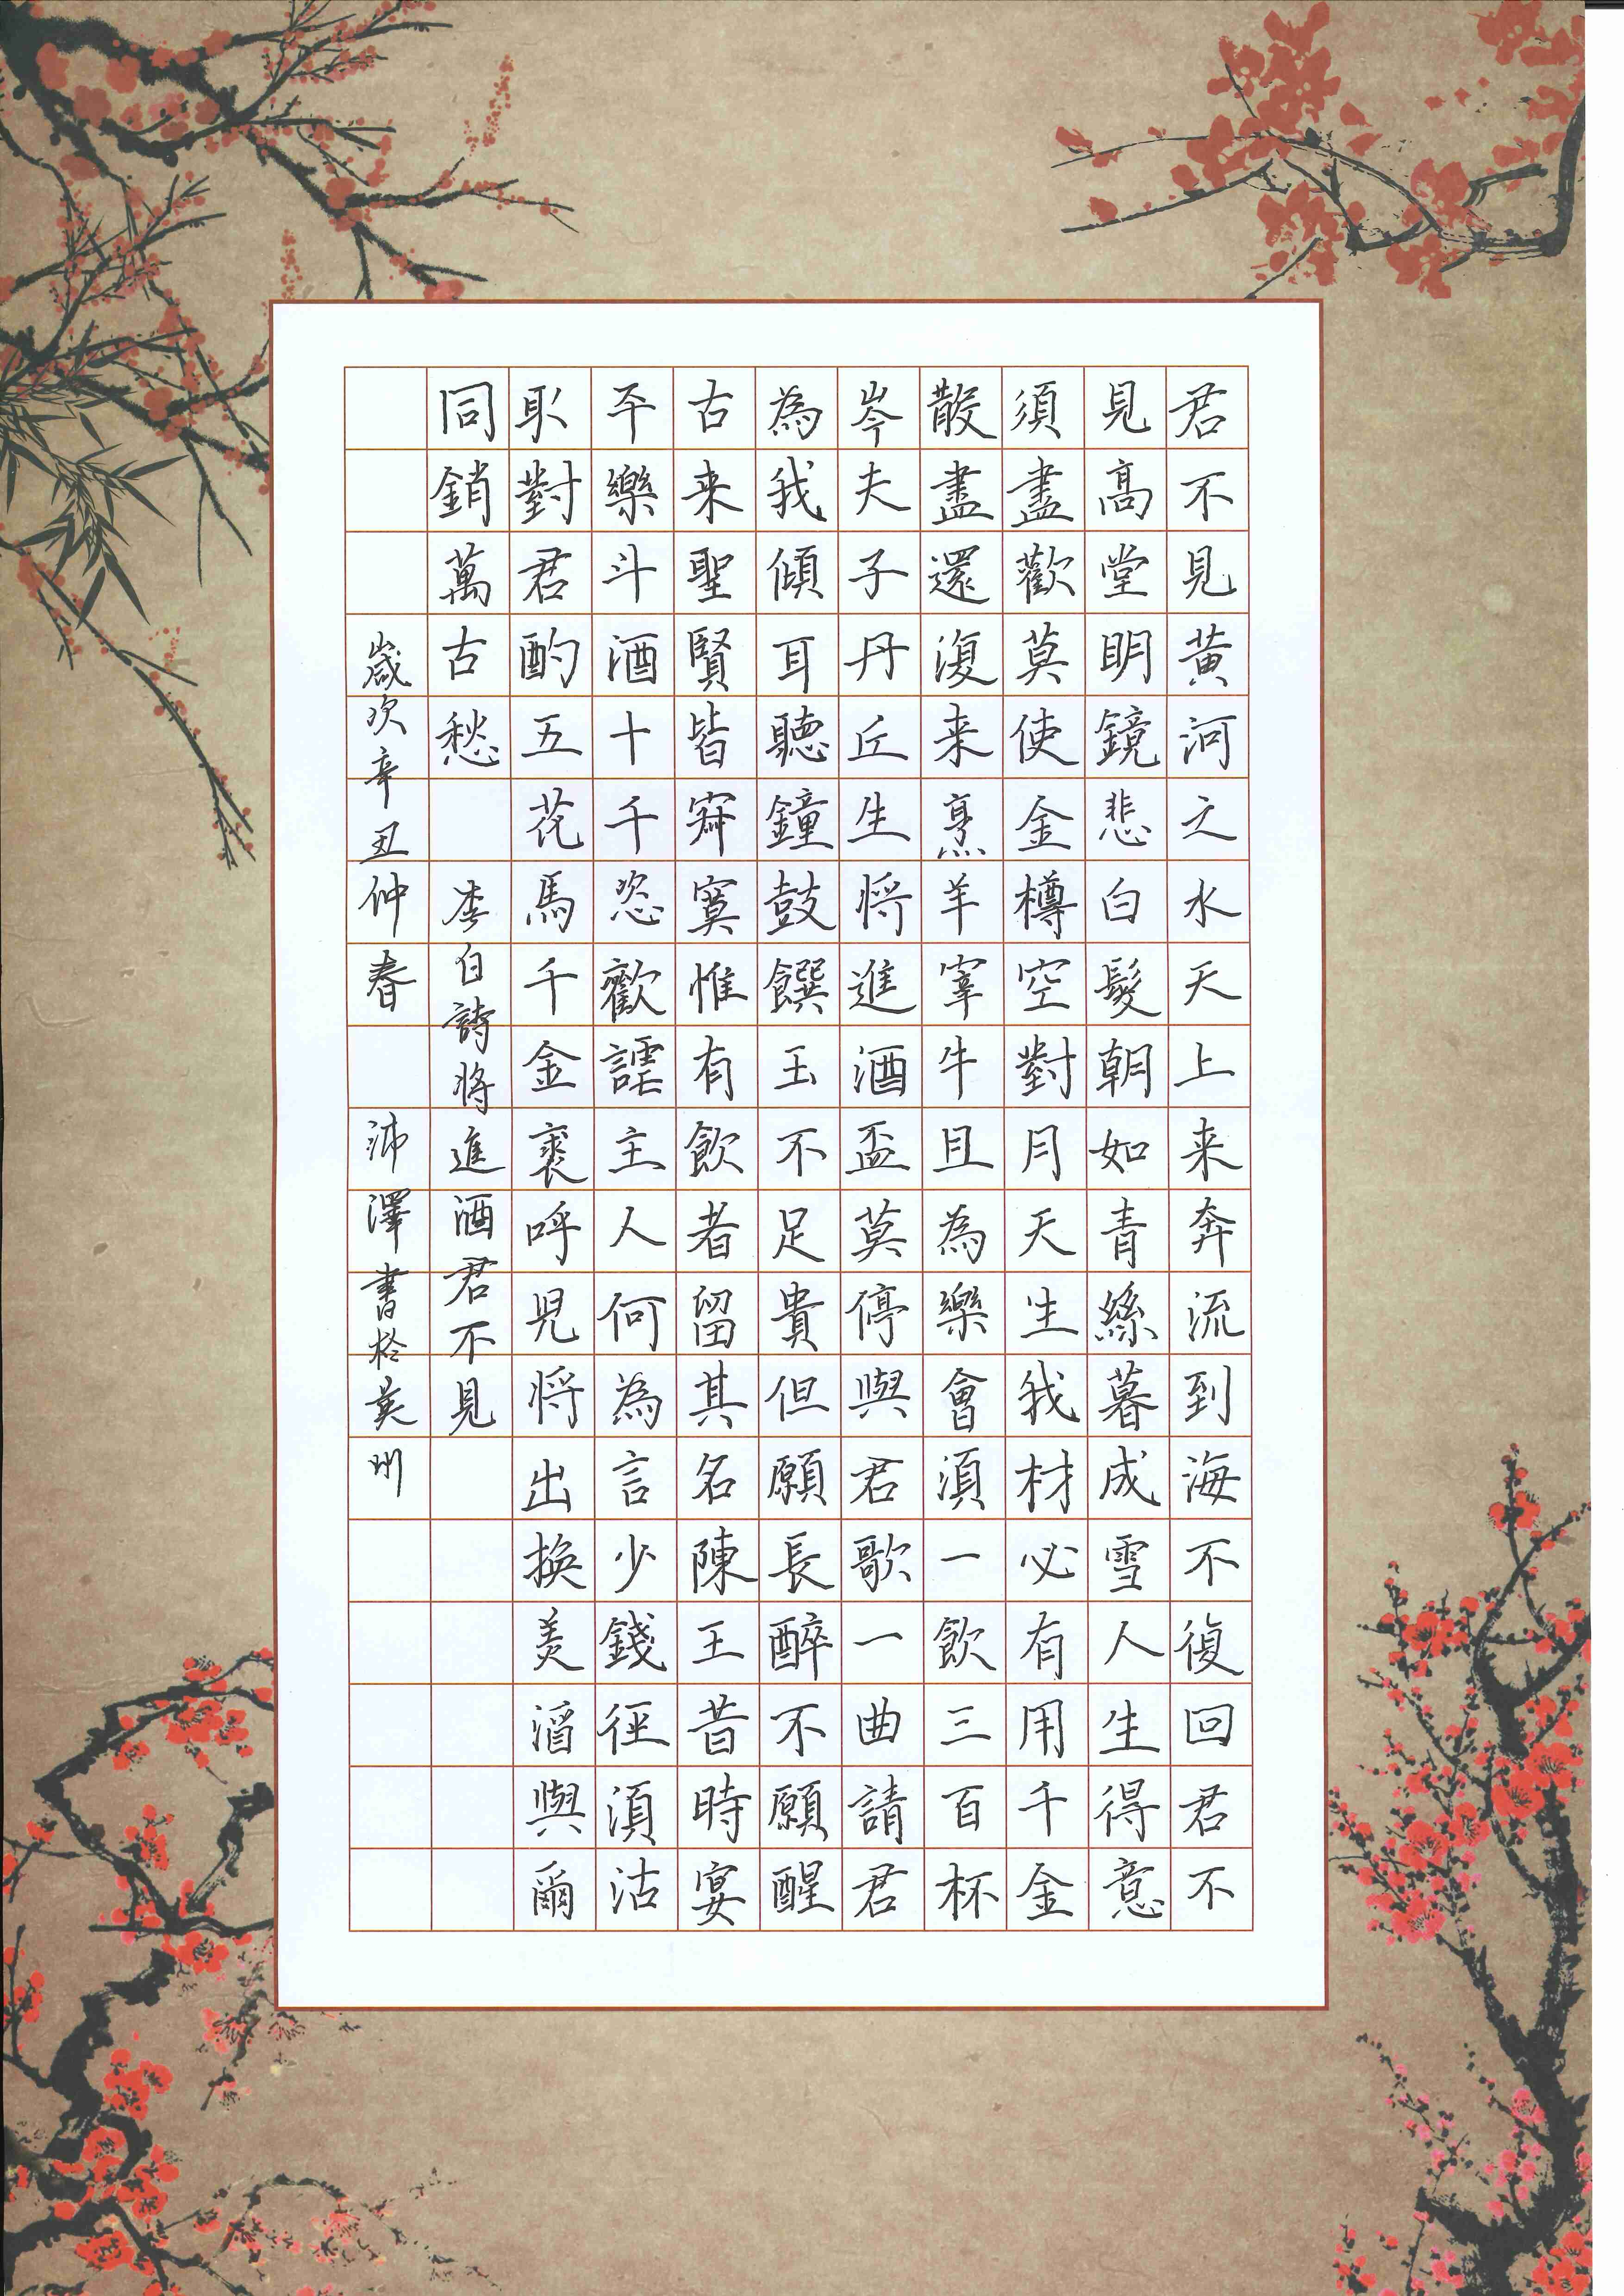 君不見黃河之水天上来奔流到海不復回君不
見高堂明鏡悲白髮朝如青絲暮成雪人生得意
須盡歡莫使金樽空對月天生我材必有用千金
散盡還復来烹羊宰牛且為樂會須一飲三百杯
岑夫子丹丘生将進酒盃莫停與君歌一曲請君
為我傾耳聽鐘鼓饌玉不足貴但願長醉不願醒
古来聖賢皆寂寞惟有飲者留其名陳王昔時宴
平樂斗酒十千恣歡謔主人何為言少錢徑須沽
取對君酌五花馬千金裘呼兒将出換美酒與爾
同銷萬古愁 李白詩将進酒君不見
歲次辛丑仲春 沛澤書於英州